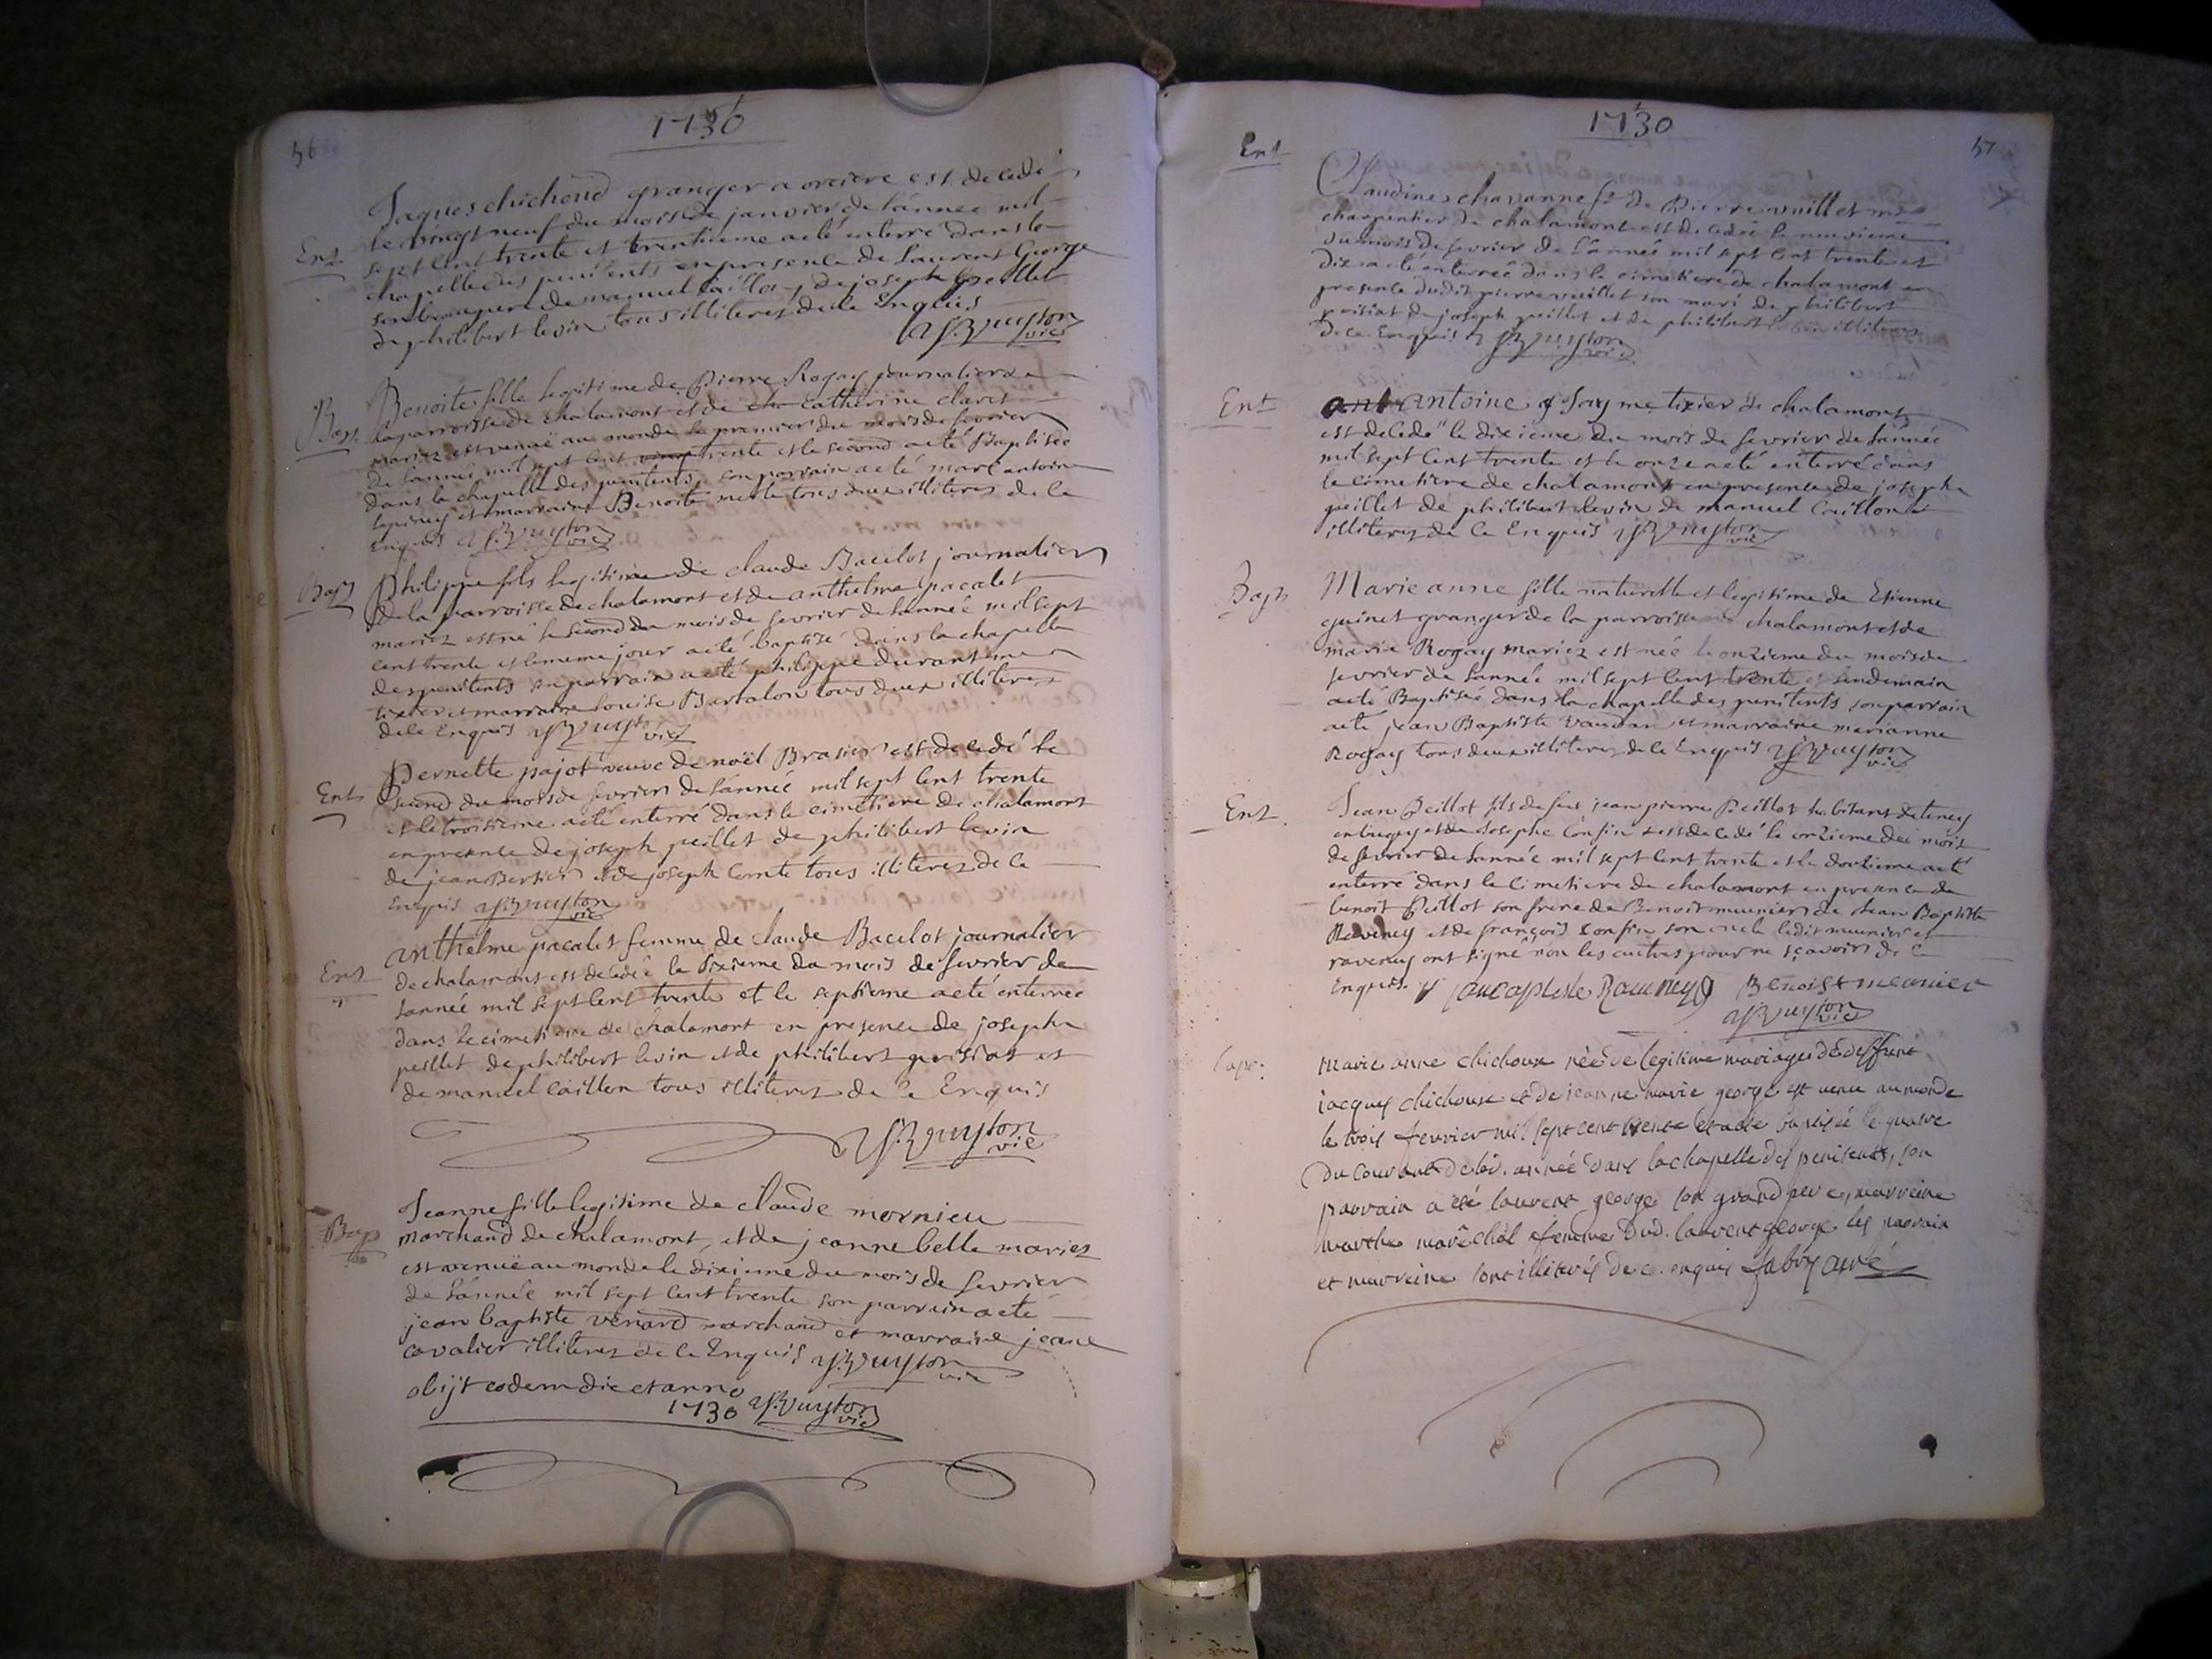 56
1730
Ent
Jaques chichoud granger a orciere est decedé
le vingt neuf du mois de janvier de l'année mil
sept cent trente et trentieme a eté enterré dans la
chapelle des penitents en presence de Laurent George
son beaupere de manuel caillon de joseph peillet
de philibert levin tous illiterez de ce Enquis
vic
Bap
Benoite fille legitime de Pierre Rogay journalier de
la parroisse de chalamont et de catherine claret
mariez est venuë au monde le premier du mois de fevrier
de l'année mil sept cent trente et le second a eté Baptisée
dans la chapelle des penitents, son parrain a eté marc antoine
et marraine Benoite tous deux illiteres de ce
Enquis vic
Bap
Philippe fils legitime de claude Bacelot journalier
de la parroisse de chalamont et de anthelme pacalet
mariez est né le second du mois de fevrier de l'année mil sept
cent trente et le meme jour a eté baptisé dans la chapelle
des penitents son parrain a eté philippe durant me
tixier et marraine Louise Bartalon tous deux illiteres
de ce Enquis vic
Ent
Pernette pajot veuve de noël Brasier est decedé le
second du mois de fevrier de l'année mil sept cent trente
et le troisieme a eté enterré dans le cimetiere de chalamont
en presence de joseph peillet de philibert levin
de jean Bersier et de joseph Comte tous illiterez de ce
Enquis vic
Ent
anthelme pacalet femme de claude Bacelot journalier
de chalamont est decedée le sixieme du mois de fevrier de
l'année mil sept cent trente et le septieme a eté enterree
dans le cimetiere de chalamont en presence de joseph
peillet de philibert levin et de philibert poisiat et
de manuel caillon tous illiterez de ce Enquis
vic
Bap
Jeanne fille legitime de claude mornieu
marchand de chalamont, et de jeanne belle mariez
est venuë au monde le dixieme du mois de fevrier
de l'année mil sept cent trente son parrain a eté
jean baptiste venard marchand et marraine jeane
cavalier illiterez de ce Enquis vic
obijt eodem die et anno
1730 vic
57
1730
Ent
Claudine chavanne fe de Pierre vuillet me
charpentier de chalamont est decedée le neuvieme
du mois de fevrier de l'année mil sept cent trente et
dix a eté enterreé dans le cimetiere de chalamont en
presence dudit pierre vuillet son mari de philibert
poisiat de joseph peillet et de philibert levin illiterez
de ce Enquis vic
Ent
antoine Jay me tixier de chalamont
est decedé le dixieme du mois de fevrier de l'année
mil sept cent trente et le onze a eté enterré dans
le cimetiere de chalamont en presence de joseph
peillet de philibert levin de manuel Caillon
illiterez de ce Enquis vic
Bap
Marie anne fille naturelle et legitime de Etienne
guinet granger de la parroisse de chalamont et de
marie Rogay mariez est née le onzieme du mois de
fevrier de l'année mil sept cent trente et lendemain
a eté Baptisée dans la chapelle des penitents son parrain
a eté jean Baptiste et marraine marianne
Rogay tous deux illiterez de ce Enquis vic
Ent
Jean Peillot fils de feu jean pierre Peillot habitant de teney
en bugey et de Josephe Confin est decedé le onzieme du mois
de fevrier de l'année mil sept cent trente et le douzieme a eté
enterré dans le cimetiere de chalamont en presence de
benoit Peillot son frere de Benoit meunier de Jean Baptiste
Raveney et de françois Confin son oncle ledit meunier et
raveney ont signé non les autres pour ne sçavoir de ce
Enquis Benoist meunier
vic
bapt.
marie anne chichoux neé de legitime mariage de deffunt
jacques chichoux et de jeanne marie george est venu au monde
le trois fevrier mil sept cent trente et a eté baptiseé le quatre
du courant dans la chapelle des penitents, son
parrain a eté laurent george son grand pere, marreine
marthe maréchal femme dud. laurent george les parrain
et marreine sont illiterés de ce enquis fabry curé